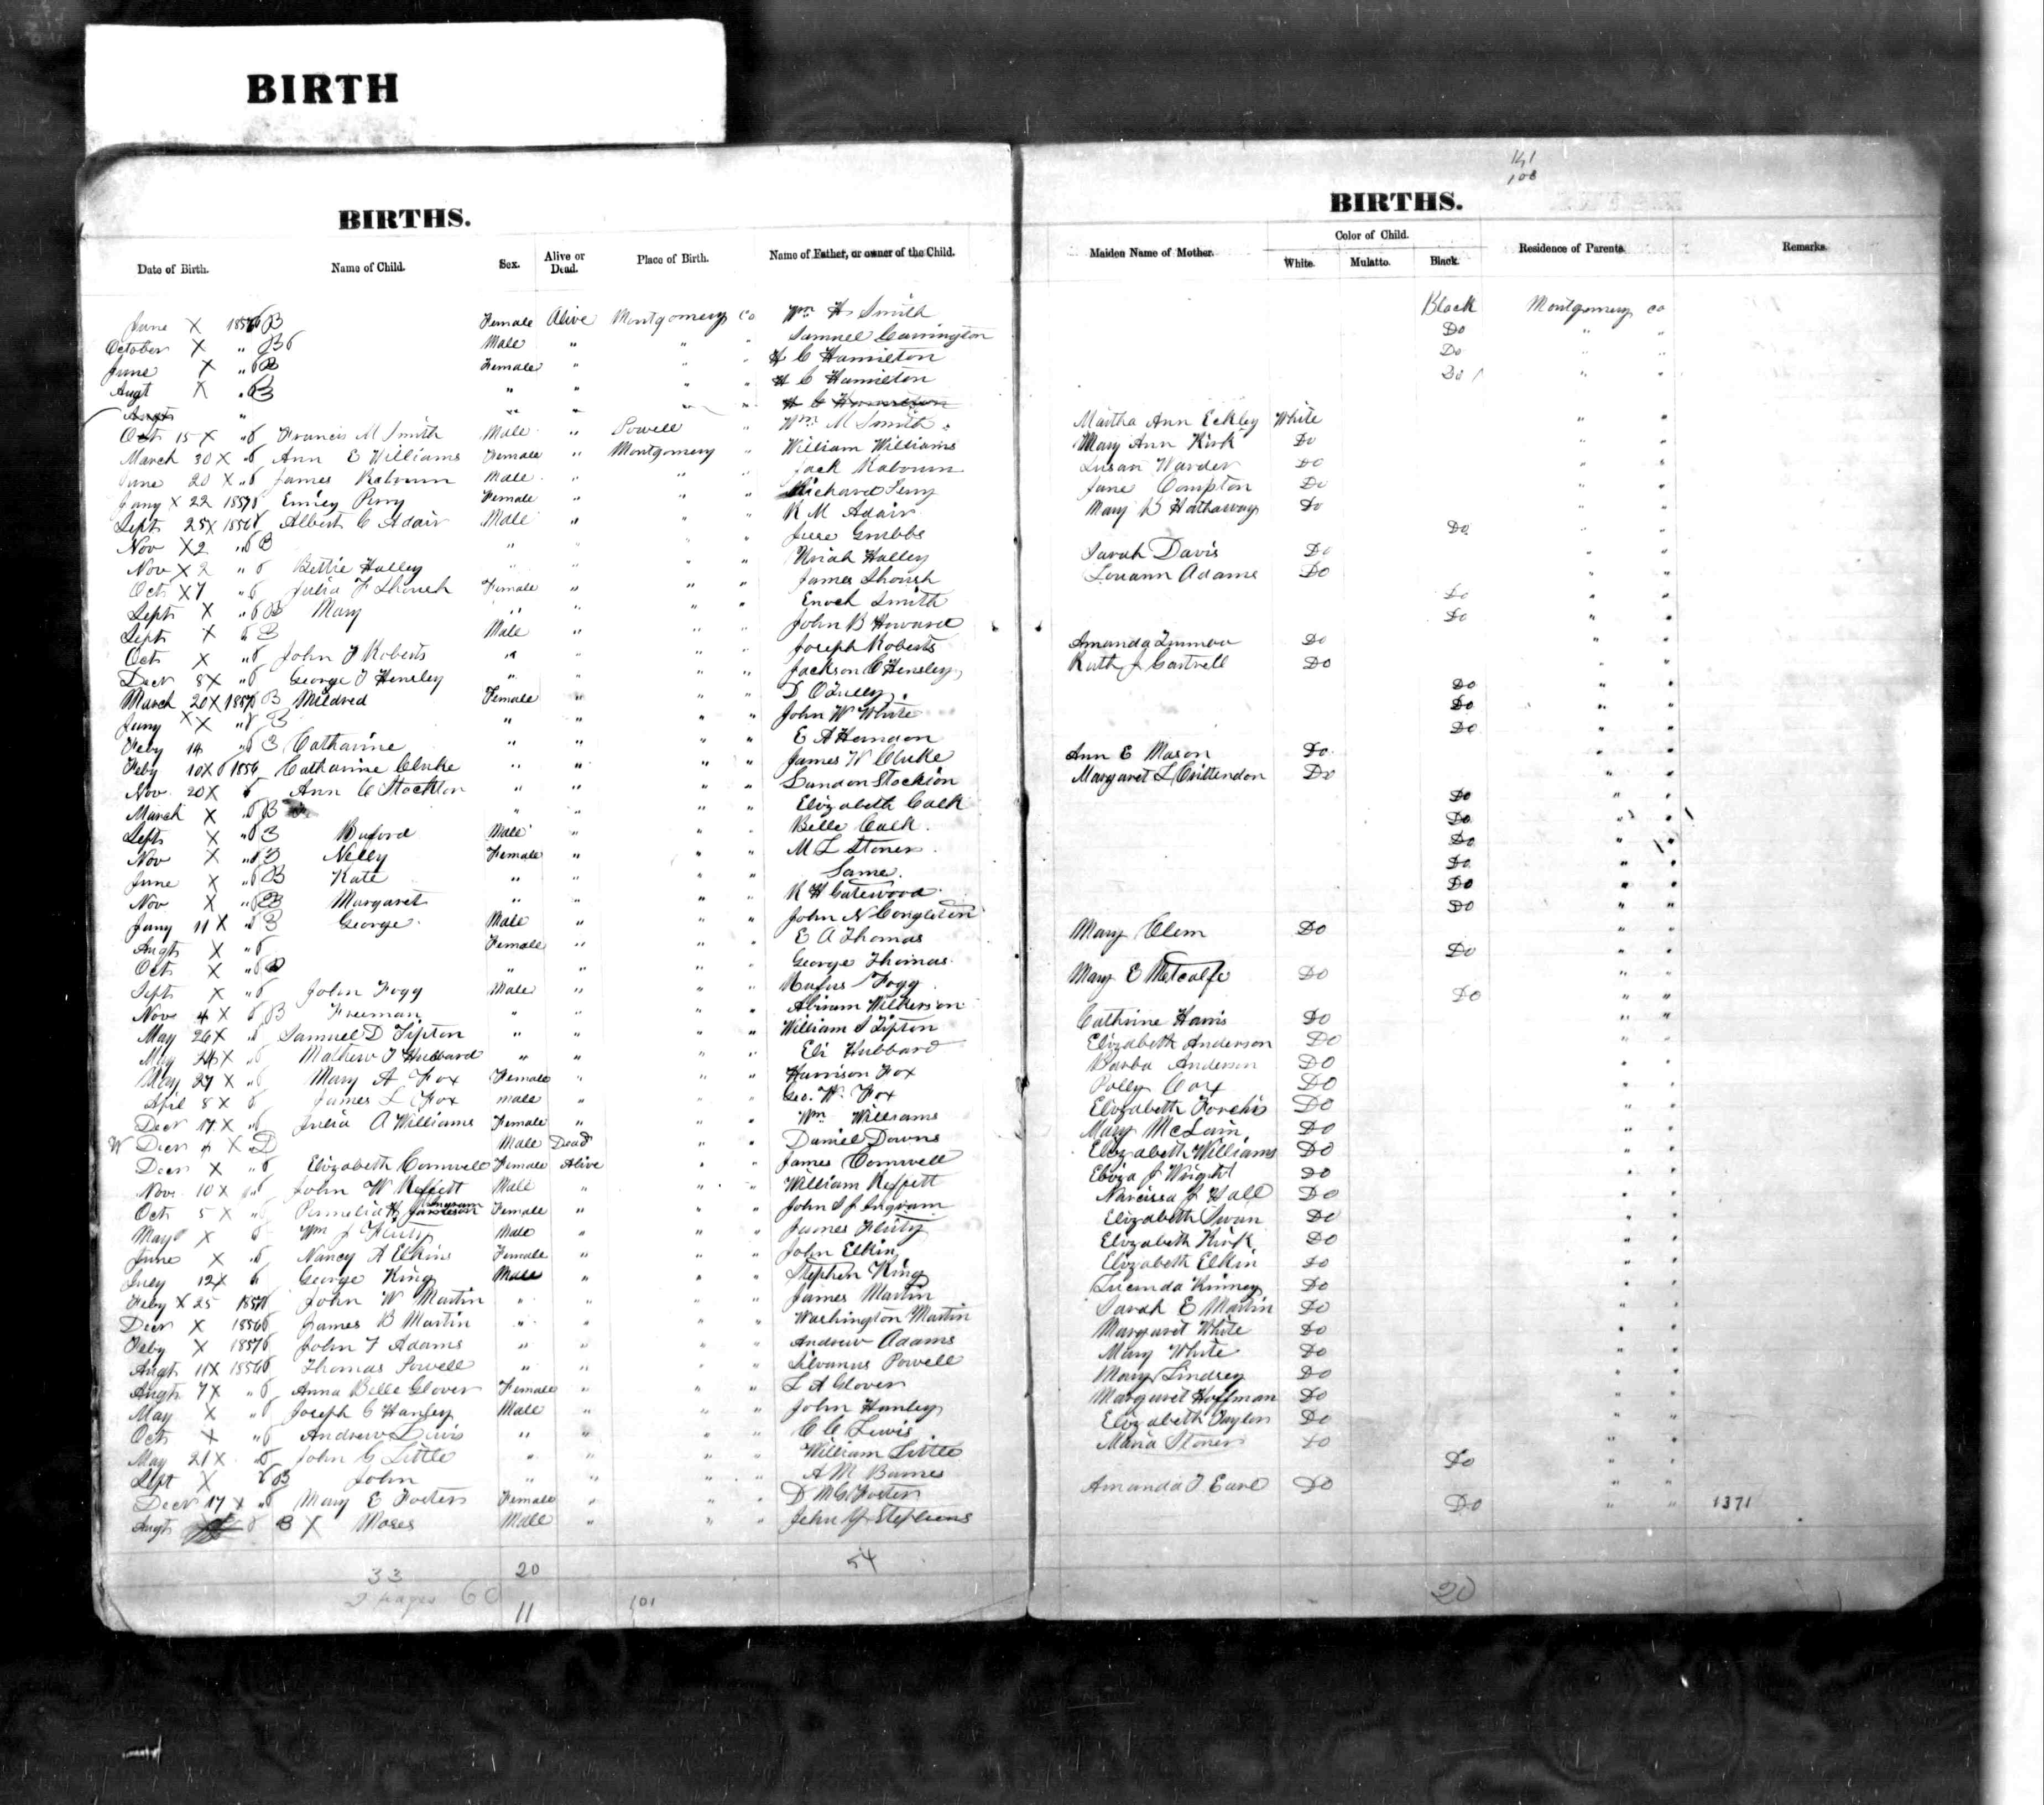 BIRTH
BIRTHS.
Date of Birth. Name of Child. Sex. Alive or Dead. Place of Birth. Name of Father, or owner of the Child.
June X 1856 B Female Alive Montgomery Co Wm H Smith
October X " B 6 Male " " " Samuel Carrington
June X " 6 B Female " " " H C Hamilton
Augt X " 6 B " " " " H C Hamilton
Augt " " " " " H C Hamilton
Oct 15 X " 6 Francis M Smith Male " Powell " Wm M Smith
March 30 X " 6 Ann E Williams Female " Montgomery " William Williams
June 20 X " 6 James Rabourn Male " " " Jack Rabourn
Jany X 22 1857 Perry Female " " " Richard Perry
Sept 25 X 1856 Albert C Adair Male " " " R M Adair
Nov X 2 " 6 B " " " Jesse Grubbs
Nov X 2 " 6 Bettie Halley " " " " Uriah Halley
Oct X 7 " 6 Julia F Female " " " James
Sept X " 6 B Mary " " " " Enoch Smith
Sept X 6 B Male " " " John B Howard
Oct X " 6 John F Roberts " " " " Joseph Roberts
Decr 8 X " 6 George T Hensley " " " " Jackson C Hensley
March 20 X 1857 B Mildred Female " " "
Jany X " B " " " " John W White
Feby 14 " 6 B Catharine " " " " E A Herndon
Feby 10 X 1856 Catharine Cluke " " " " James W Cluke
Nov 20 X 6 Ann C Stockton " " " " Stockton
March X " 6 B " " " " Elizabeth Calk
Sept X " 6 B Buford Male " " " Belle Calk
Nov X " 6 B Nelly Female " " " M L Stoner
June X " 6 B Kate " " " " Same
Nov X " 6 B Margaret " " " " R H Gatewood
Jany 11 X " 6 B George Male " " " John N Congleton
Augt X " 6 Female " " " E A Thomas
Oct X " 6 B " " " " George Thomas
Sept X " 6 John Fogg Male " " " Rufus Fogg
Nov 4 X 6 B Freeman " " " " Abiram Wilkerson
May 26 X " 6 Samuel D Tipton " " " " William S Tipton
May 24 X " 6 Mathew T Hubbard " " " " Eli Hubbard
May 27 X " 6 Mary A Fox Female " " " Harrison Fox
April 8 X 6 James L Fox male " " " Geo. W. Fox
Decr 17 X " 6 Julia A Williams Female " " " Wm Williams
W Decr 4 X D Male Dead " " Daniel Downs
Decr X " 6 Elizabeth Cornwell Female Alive " " James Cornwell
Nov 10 X " 6 John W Reffett Male " " " William Reffett
Oct 5 X " 6 Permelia H Ingram Female " " " John S J Ingram
May X 6 Wm J Fluty Male " " " James Fluty
June X " 6 Nancy A Elkins Female " " " John Elkin
July 12 X 6 George King Male " " " Stephen King
Feby X 25 1857 John W Martin " " " " James Martin
Decr X 1856 James B Martin " " " " Washington Martin
Feby X 1857 John F Adams " " " " Andrew Adams
Augt 11 X 1856 Thomas Powell " " " " Silvanus Powell
Augt 7 X " 6 Anna Belle Glover Female " " " L A Glover
May X " 6 Joseph C Hanley Male " " " John Hanley
Oct X " 6 Andrew Lewis " " " " C C Lewis
May 21 X 6 John C Little " " " " William Little
Sept X 6 B John " " " " A M Barnes
Decr 17 X " 6 Mary E Foster Female " " " D M C Foster
Augt 6 B X Moses Male " " " John Y Stephens
33 20 54
2 pages 60 11 101
141
108
BIRTHS.
Maiden Name of Mother. Color of Child. White. Mulatto. Black. Residence of Parents. Remarks.
Black Montgomery co
Do " "
Do " "
Do " "
Martha Ann Eckley White " "
Mary Ann Kirk Do " "
Susan Warder Do " "
Jane Compton Do " "
Mary B Hathaway Do " "
Do " "
Sarah Davis Do " "
Louann Adams Do " "
Do " "
Do " "
Amanda Do " "
Ruth J Cartrell Do " "
Do " "
Do " "
Do " "
Ann E Mason Do " "
Margaret L Crittendon Do " "
Do " "
Do " "
Do " "
Do " "
Do " "
Do " "
Mary Clem Do " "
Do " "
Mary E Metcalfe Do " "
Do " "
Cathrine Harris Do " "
Elizabeth Anderson Do " "
Barba Anderson Do " "
Polly Do " "
Elizabeth Do " "
Mary McLain Do " "
Elizabeth Williams Do " "
Eliza J Wright Do " "
Narcissa J Hall Do " "
Elizabeth Swan Do " "
Elizabeth Kirk Do " "
Elizabeth Elkin Do " "
Lucinda Kinney Do " "
Sarah E Martin Do " "
Margaret White Do " "
Mary White Do " "
Mary Lindsey Do " "
Margaret Hoffman Do " "
Elizabeth Taylor Do " "
Maria Stoner Do " "
Do " "
Amanda F Earl Do " "
Do " " 1371
20